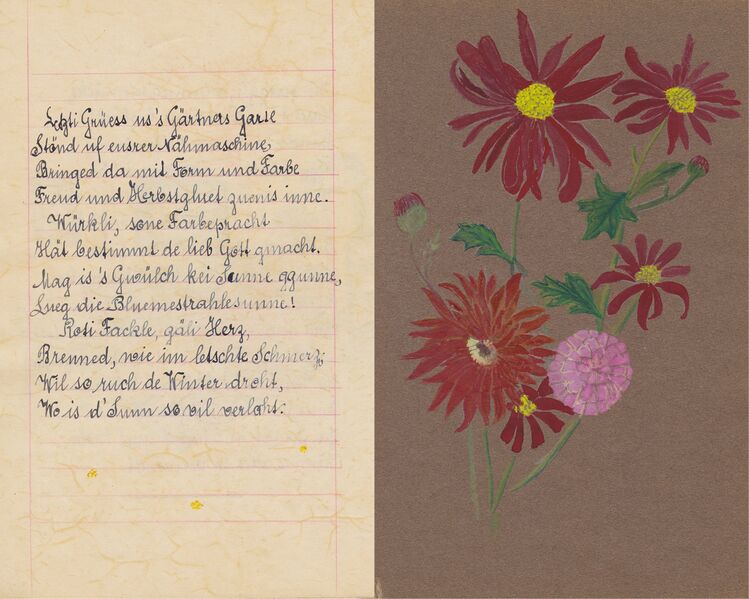 Letzti Grüess us's Gärtners Garte
Stönd uf eusrer Nähmaschine,
Bringed da mit Form und Farbe
Freud und Herbstgluet zuenis inne.
Würkli, sone Farbepracht
Hät bestimmt de lieb Gott gmacht.
Mag is's Gwülch kei Sunne ggunne,
Lueg die Bluemestrahlesunne!
Roti Fackle, gäli Herz,
Brenned, wie im letschte Schmerz;
Wil so ruch de Winter droht,
Wo is d'Sunn so vil verloht.